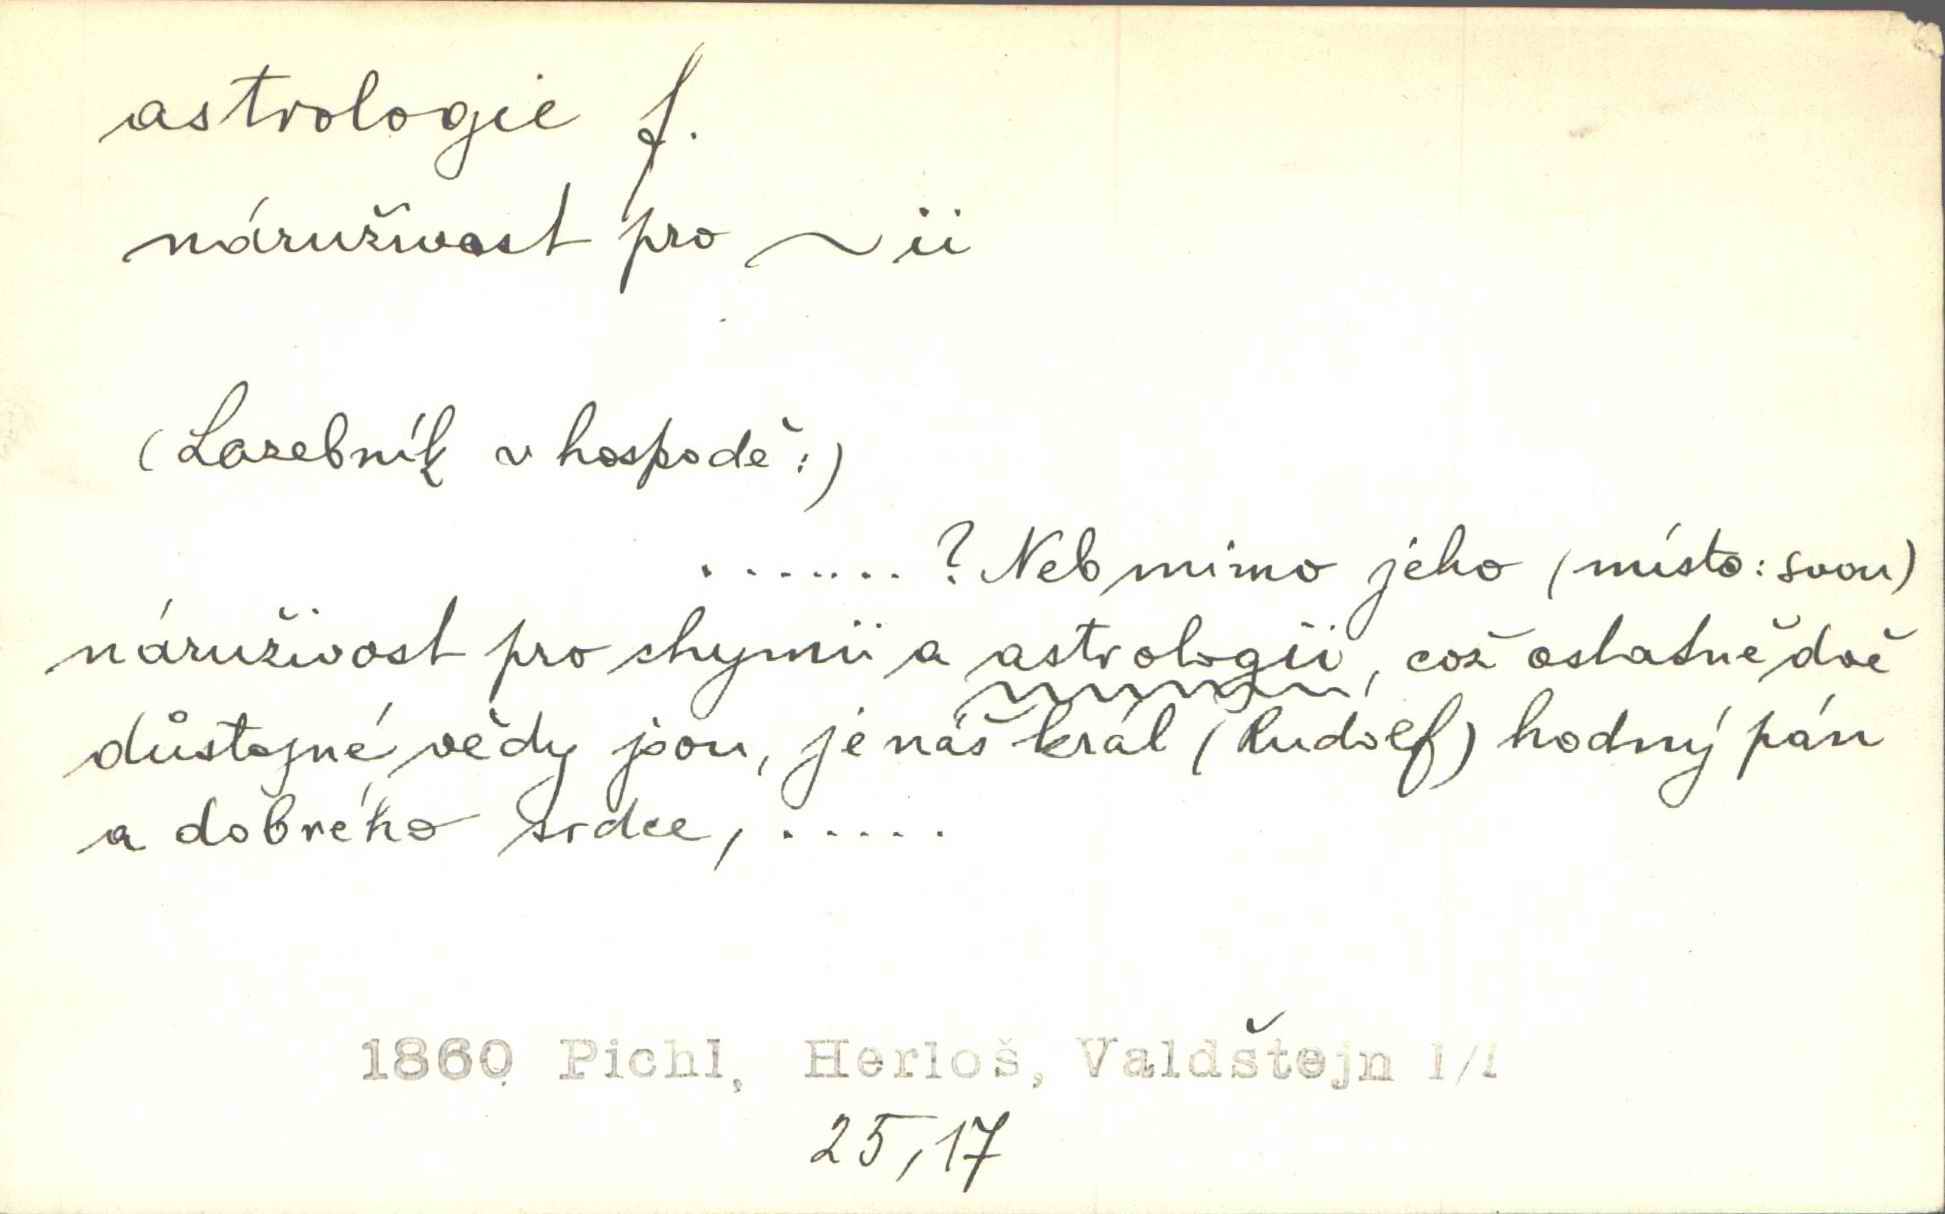 astrologie f.
náruživost pro ~ii
(Lazebník v hospodě:)
.......? Neb mimo jeho (místo: svou)
náruživost pro chymii a astrologii, což ostatně dvě
důstojné vědy jsou, je náš král (Rudolf) hodný pán
a dobrého srdce, .....
1860 Pichl, Herloš, Valdštejn 1/1
25,17